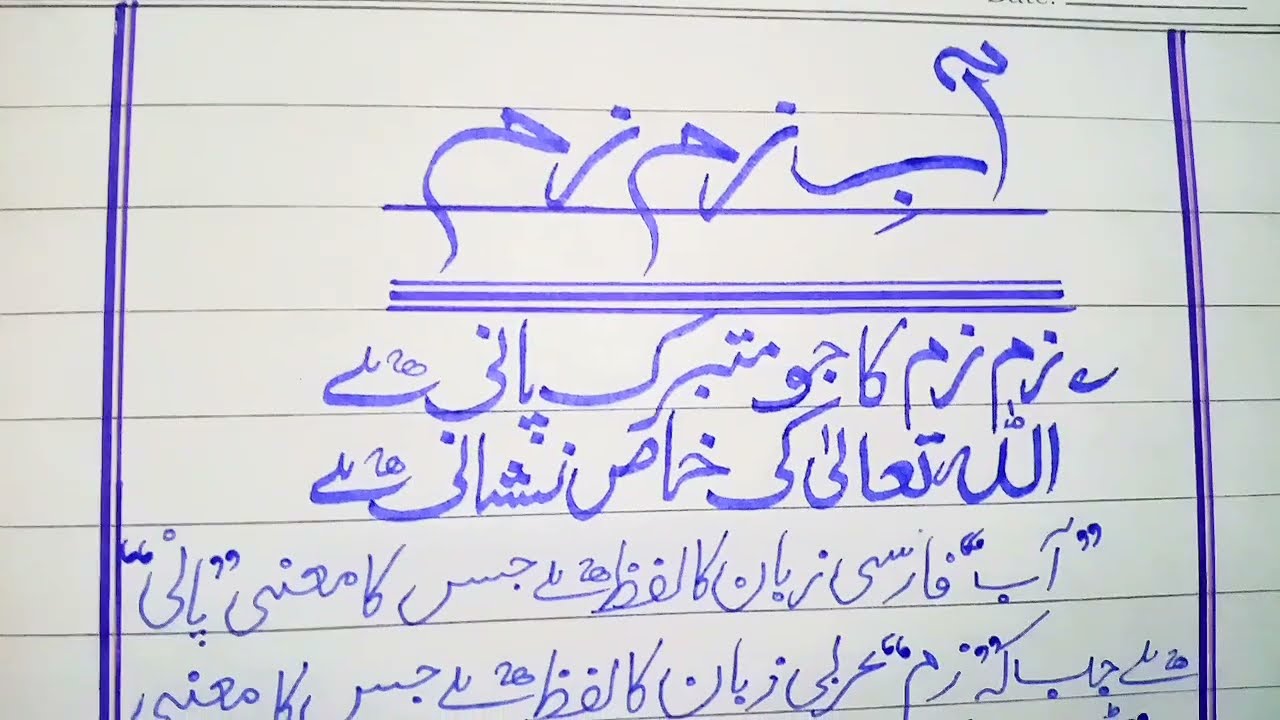 Date:
آبِ زم زم
ے زم زم کا جو متبرک پانی ہے
اللہ تعالیٰ کی خاص نشانی ہے
”آب“ فارسی زبان کا لفظ ہے جس کا معنی ”پانی“
ہے جب کہ ”زم“ عربی زبان کا لفظ ہے جس کا معنی